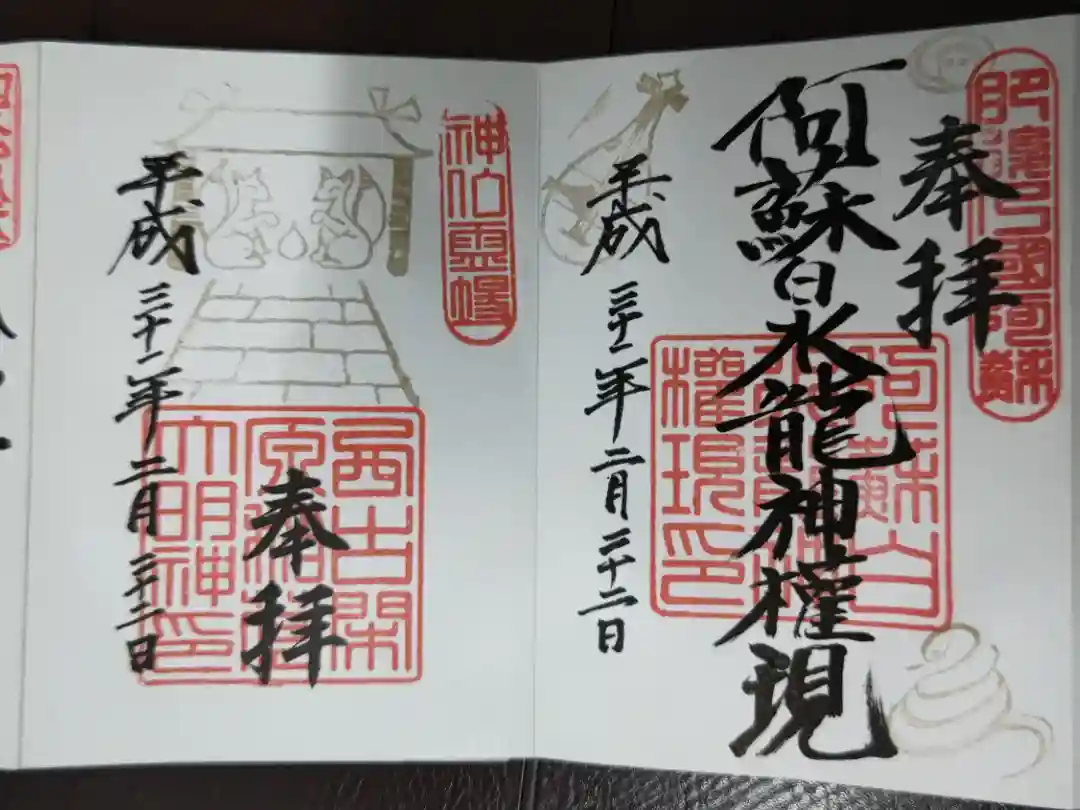 肥後乃國阿蘇
奉拝
阿蘇白水龍神權現
阿蘇白
水龍神
權現印
平成三十一年二月二十二日
神佑霊場
奉拝
西古閑
原稲荷
大明神印
平成三十一年二月二十二日